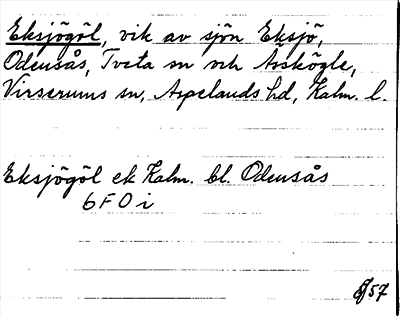 Eksjögöl, vik av sjön Eksjö,
Odensås, Tveta sn och Åskögle,
Virserums sn, Aspelands hd, Kalm. l.
Eksjögöl ek Kalm. bl. Odensås
6 F 0 i
57